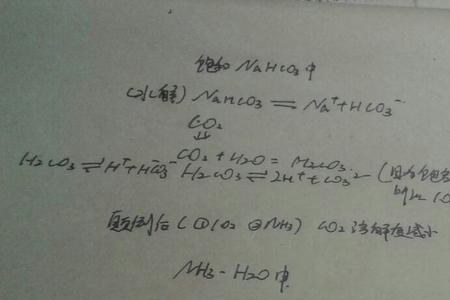 饱和 NaHCO3 中
(水解) NaHCO3 ⇌ Na⁺+HCO3⁻
CO2
⇓
CO2+H2O = H2CO3
H2CO3 ⇌ H⁺+HCO3⁻ H2CO3 ⇌ 2H⁺+CO3²⁻ (因为饱
颠倒后 (①CO2 ②NH3) CO2 溶解度减小
NH3-H2O中